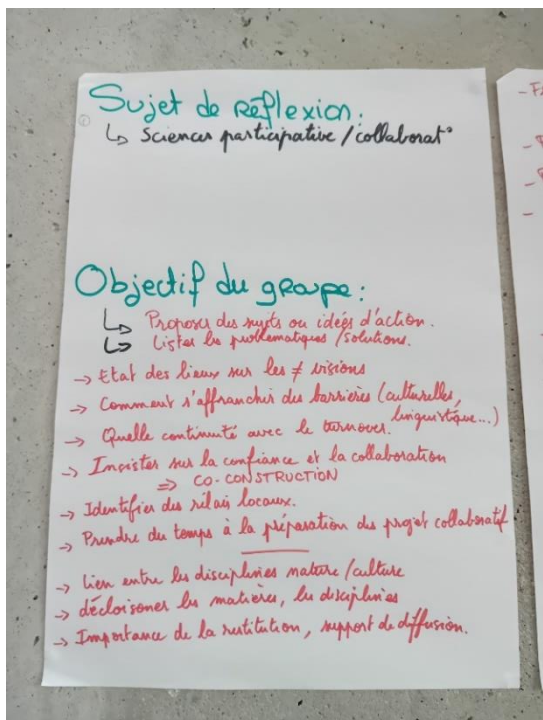 Sujet de réflexion:
↳ Sciences participative / collaborat°
Objectif du groupe:
↳ Proposer des sujets ou idées d'action.
↳ Lister les problématiques / solutions.
→ Etat des lieux sur les ≠ visions
→ Comment s'affranchir des barrières (culturelles,
linguistique...)
→ Quelle continuité avec le turnover.
→ Incister sur la confiance et la collaboration
⇒ CO-CONSTRUCTION
→ Identifier des relais locaux.
→ Prendre du temps à la préparation du projet collaboratif
→ Lien entre les disciplines nature / culture
→ décloisoner les matières, les disciplines
→ Importance de la restitution, support de diffusion.